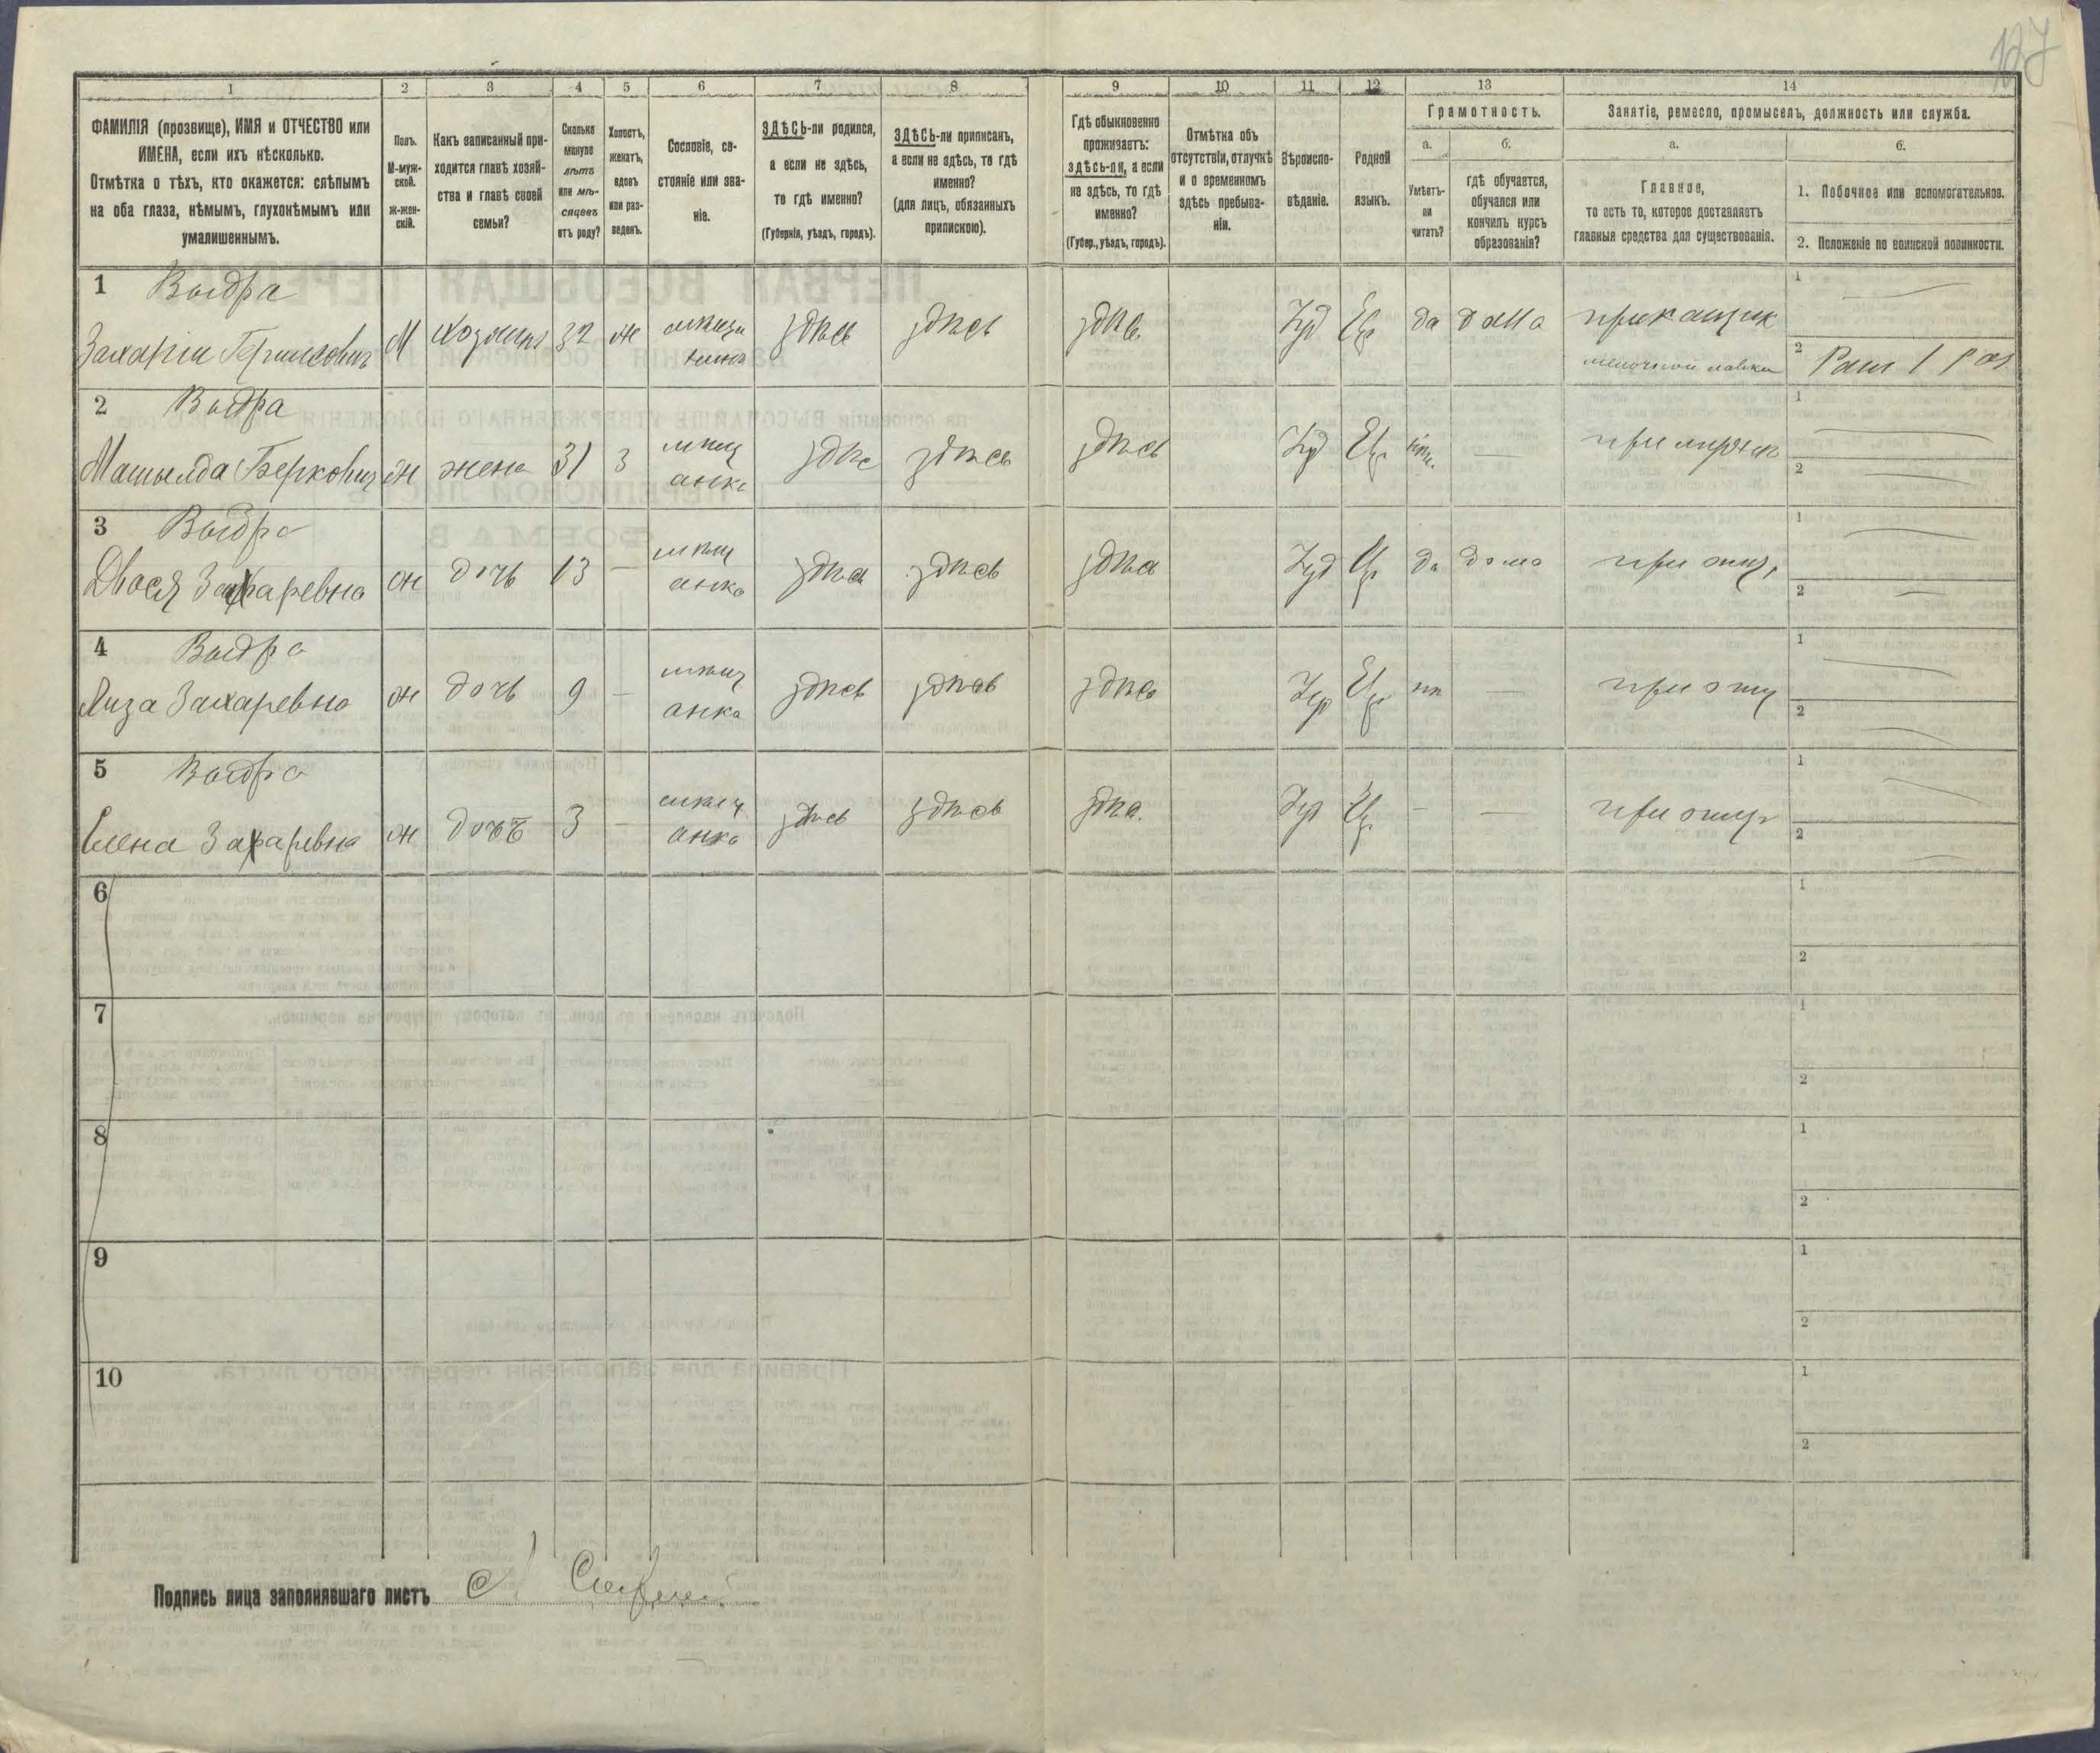 127
1 2 3 4 5 6 7 8 9 10 11 12 13 14
ФАМИЛІЯ (прозвище), ИМЯ и ОТЧЕСТВО или
ИМЕНА, если ихъ нѣсколько.
Отмѣтка о тѣхъ, кто окажется: слѣпымъ
на оба глаза, нѣмымъ, глухонѣмымъ или
умалишеннымъ.
Полъ.
М-муж-
ской.
ж-жен-
скій.
Какъ записанный при-
ходится главѣ хозяй-
ства и главѣ своей
семьи?
Сколько
минуло
лѣтъ
или мѣ-
сяцевъ
отъ роду?
Холостъ,
женатъ,
вдовъ
или раз-
веденъ.
Сословіе, со-
стояніе или зва-
ніе.
ЗДѢСЬ-ли родился,
а если не здѣсь,
то гдѣ именно?
(Губернія, уѣздъ, городъ).
ЗДѢСЬ-ли приписанъ,
а если не здѣсь, то гдѣ
именно?
(для лицъ, обязанныхъ
припискою).
Гдѣ обыкновенно
проживаетъ:
здѣсь-ли, а если
не здѣсь, то гдѣ
именно?
(Губер., уѣздъ, городъ).
Отмѣтка объ
отсутствіи, отлучкѣ
и о временномъ
здѣсь пребыва-
ніи.
Вѣроиспо-
вѣданіе.
Родной
языкъ.
Грамотность.
а.
Умѣетъ-
ли
читать?
б.
гдѣ обучается,
обучался или
кончилъ курсъ
образованія?
Занятіе, ремесло, промыселъ, должность или служба.
а.
Главное,
то есть то, которое доставляетъ
главныя средства для существованія.
б.
1. Побочное или вспомогательное.
2. Положеніе по воинской повинности.
1 Выдра
Захарія М хозяинъ 32 ж мѣща здѣсь здѣсь здѣсь Іуд Евр да дома прикащик 1
нинъ мелочной лавки 2
2 Выдра
Берковна ж жена 31 З мѣщ здѣсь здѣсь здѣсь Іуд Евр при мужѣ 1
анка 2
3 Выдра
Двося Захаревна ж дочь 13 — мѣщ здѣсь здѣсь здѣсь Іуд Евр да дома при отцѣ 1
анка 2
4 Выдра
Лиза Захаревна ж дочь 9 — мѣщ здѣсь здѣсь здѣсь Іуд Евр нѣ — при отц 1
анка 2
5 Выдра
Елена Захаревна ж дочь 3 — мѣщ здѣсь здѣсь здѣсь Іуд Евр — — при отцѣ 1
анка 2
6 1
2
7 1
2
8 1
2
9 1
2
10 1
2
Подпись лица заполнявшаго листъ